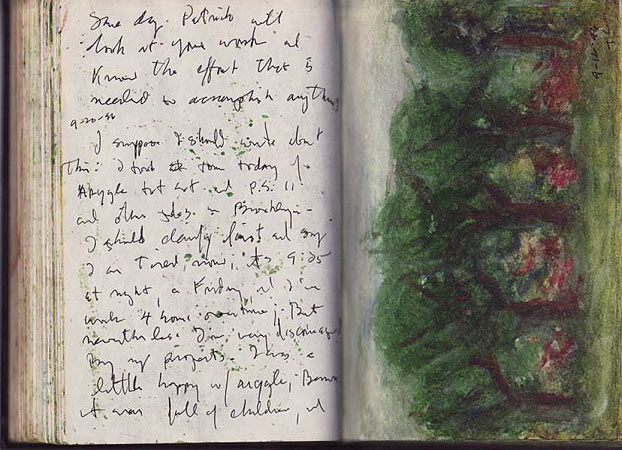 Some day Patrick will
look at your work and
Know the effort that is
needed to accomplish anything
9-20-86
I suppose I should write about
This: I took tour today of
Argyle lot at P.S. 11
and other in Brooklyn -
I should clarify first and say
I am Tired, now, its 9:25
at night, a Friday, and I've
work 4 hours overtime; But
nevertheless I'm very discouraged
by my projects. I was a
little happy w/ argyle, Because
it was full of children, and
9-16-86